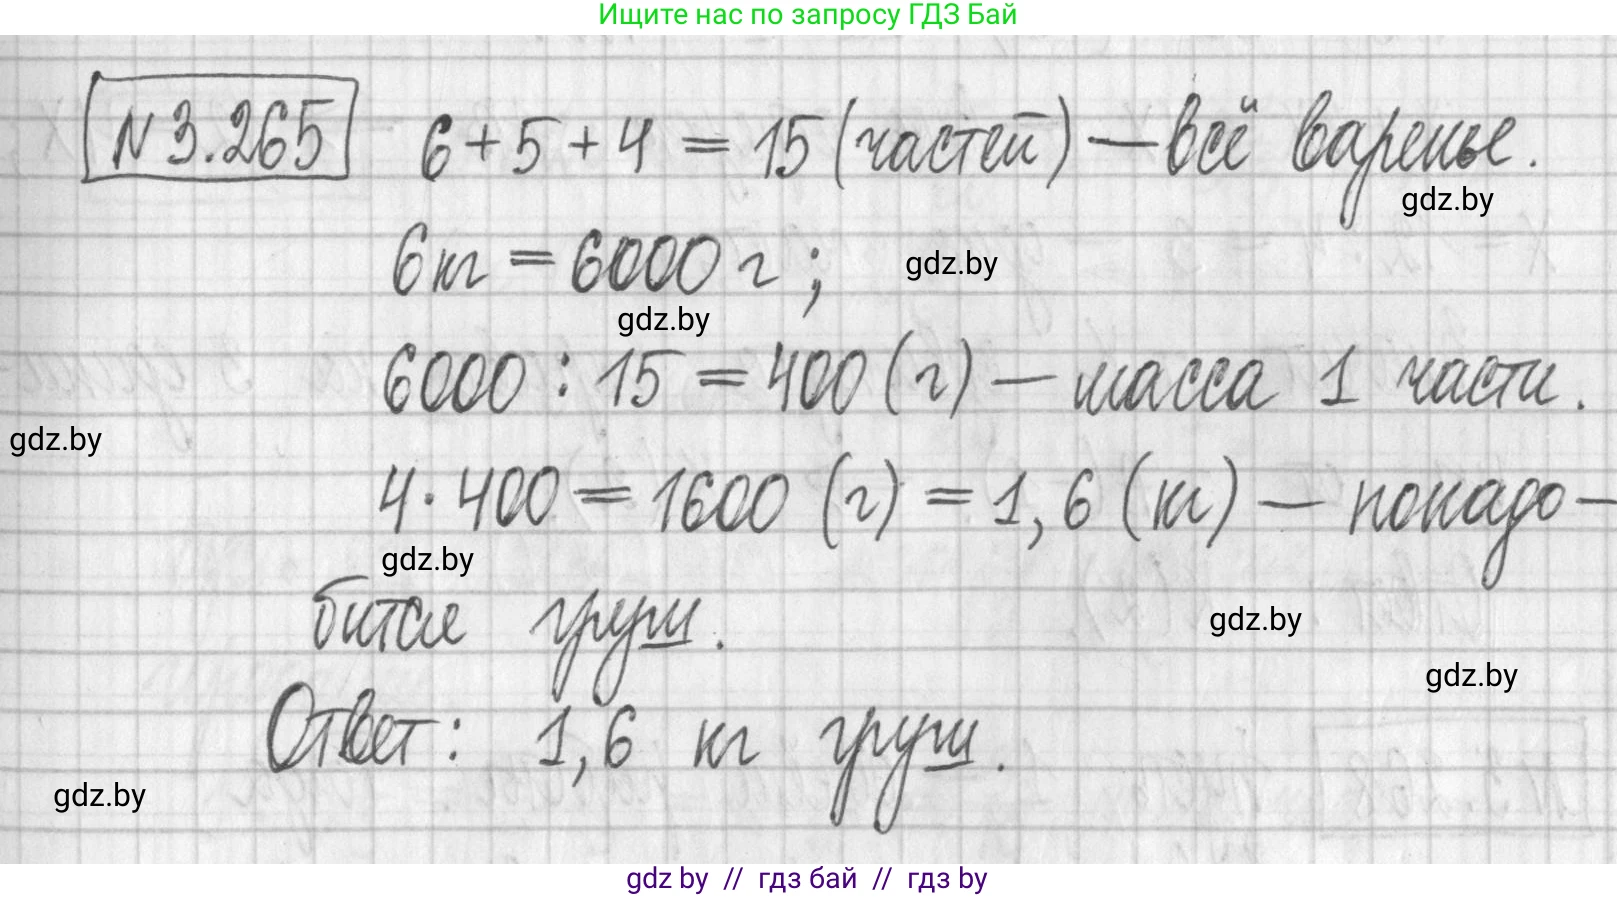 Ищите нас по запросу ГДЗ Бай
N 3.265 6 + 5 + 4 = 15 (частей) — всё варенье.
gdz.by
6 кг = 6000 г ;
gdz.by
gdz.by
6000 : 15 = 400 (г) — масса 1 части.
gdz.by
4 · 400 = 1600 (г) = 1,6 (кг) — понадо-
gdz.by
бится груш.
gdz.by
gdz.by
Ответ: 1,6 кг груш.
gdz.by
gdz by // гдз бай // гдз by